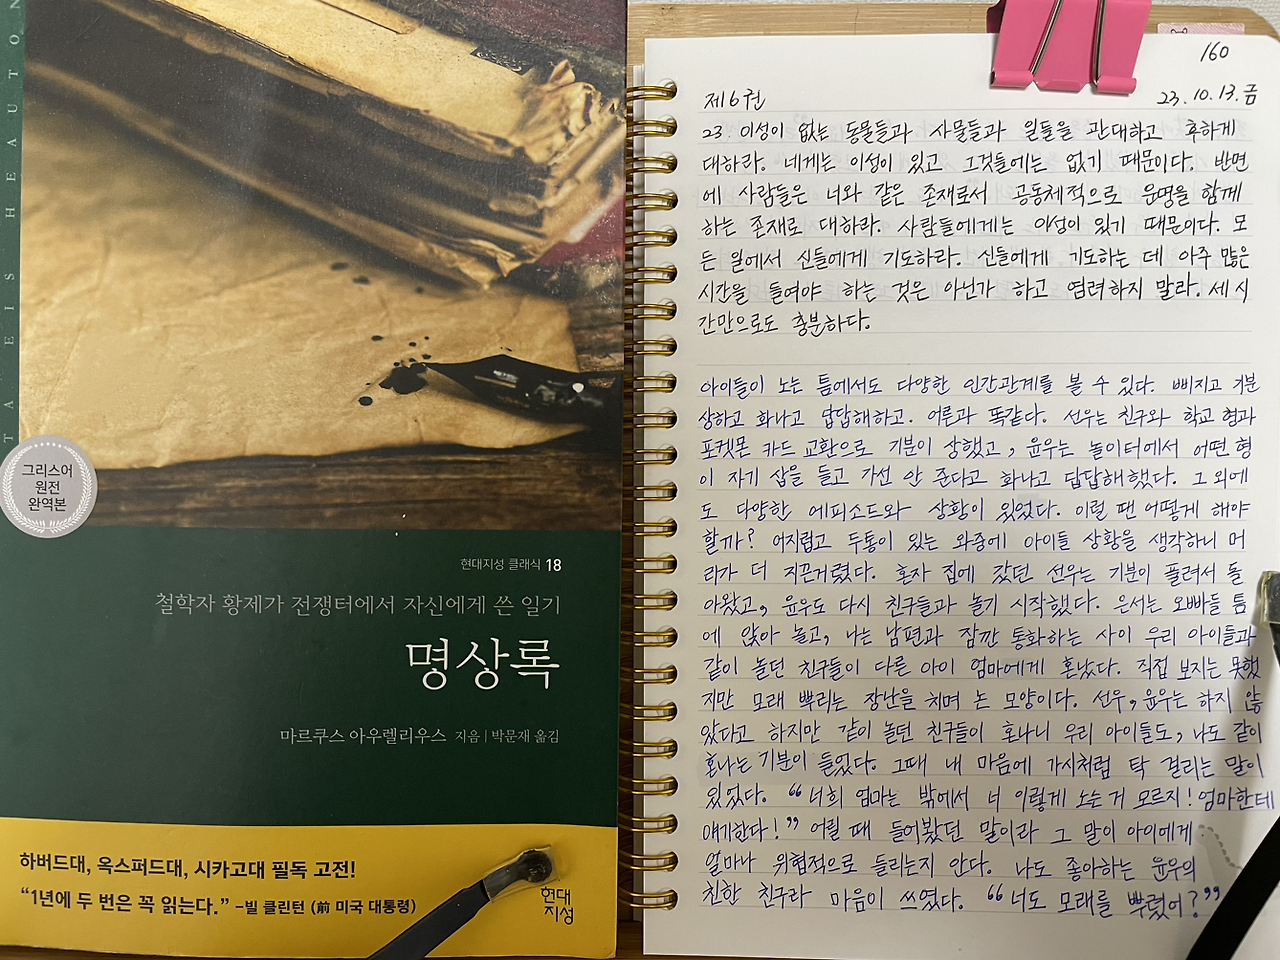 TA EIS HEAUTON
그리스어
원전
완역본
현대지성 클래식 18
철학자 황제가 전쟁터에서 자신에게 쓴 일기
명상록
마르쿠스 아우렐리우스 지음 | 박문재 옮김
하버드대, 옥스퍼드대, 시카고대 필독 고전!
“1년에 두 번은 꼭 읽는다.” –빌 클린턴 (前 미국 대통령)
현대
지성
160
제6권
23.10.13.금
23. 이성이 없는 동물들과 사물들과 일들을 관대하고 후하게
대하라. 네게는 이성이 있고 그것들에는 없기 때문이다. 반면
에 사람들은 너와 같은 존재로서 공동체적으로 운명을 함께
하는 존재로 대하라. 사람들에게는 이성이 있기 때문이다. 모
든 일에서 신들에게 기도하라. 신들에게 기도하는 데 아주 많은
시간을 들여야 하는 것은 아닌가 하고 염려하지 말라. 세 시
간만으로도 충분하다.
아이들이 노는 틈에서도 다양한 인간관계를 볼 수 있다. 삐지고 기분
상하고 화나고 답답해하고. 어른과 똑같다. 선우는 친구와 학교 형과
포켓몬 카드 교환으로 기분이 상했고, 윤우는 놀이터에서 어떤 형
이 자기 삽을 들고 가선 안 준다고 화나고 답답해했다. 그 외에
도 다양한 에피소드와 상황이 있었다. 이럴 땐 어떻게 해야
할까? 어지럽고 두통이 있는 와중에 아이들 상황을 생각하니 머
리가 더 지끈거렸다. 혼자 집에 갔던 선우는 기분이 풀려서 돌
아왔고, 윤우도 다시 친구들과 놀기 시작했다. 은서는 오빠들 틈
에 앉아 놀고, 나는 남편과 잠깐 통화하는 사이 우리 아이들과
같이 놀던 친구들이 다른 아이 엄마에게 혼났다. 직접 보지는 못했
지만 모래 뿌리는 장난을 치며 논 모양이다. 선우, 윤우는 하지 않
았다고 하지만 같이 놀던 친구들이 혼나니 우리 아이들도, 나도 같이
혼나는 기분이 들었다. 그때 내 마음에 가시처럼 탁 걸리는 말이
있었다. “너희 엄마는 밖에서 너 이렇게 노는 거 모르지! 엄마한테
얘기한다!” 어릴 때 들어봤던 말이라 그 말이 아이에게
얼마나 위협적으로 들리는지 안다. 나도 좋아하는 윤우의
친한 친구라 마음이 쓰였다. “너도 모래를 뿌렸어?”